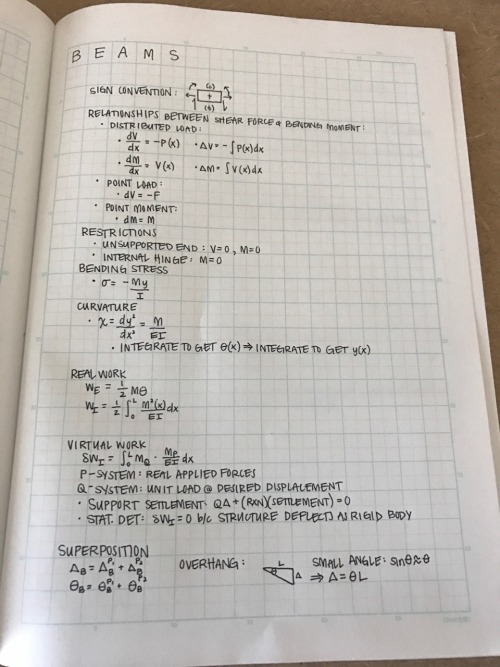 BEAMS
SIGN CONVENTION: (c) + (t)
RELATIONSHIPS BETWEEN SHEAR FORCE & BENDING MOMENT:
• DISTRIBUTED LOAD:
• dV/dx = -P(x) • ΔV = -∫P(x)dx
• dM/dx = V(x) • ΔM = ∫V(x)dx
• POINT LOAD:
• dV = -F
• POINT MOMENT:
• dM = M
RESTRICTIONS
• UNSUPPORTED END: V=0, M=0
• INTERNAL HINGE: M=0
BENDING STRESS
• σ = -My/I
CURVATURE
• χ = dy²/dx² = M/EI
• INTEGRATE TO GET θ(x) ⇒ INTEGRATE TO GET y(x)
REAL WORK
W_E = 1/2 Mθ
W_I = 1/2 ∫₀ᴸ M²(x)/EI dx
VIRTUAL WORK
δW_I = ∫₀ᴸ M_Q · M_P/EI dx
P-SYSTEM: REAL APPLIED FORCES
Q-SYSTEM: UNIT LOAD @ DESIRED DISPLACEMENT
• SUPPORT SETTLEMENT: QΔ + (RXN)(SETTLEMENT) = 0
• STAT. DET: δW_I = 0 b/c STRUCTURE DEFLECTS AS RIGID BODY
SUPERPOSITION
Δ_B = Δ_B^P₁ + Δ_B^P₂
θ_B = θ_B^P₁ + θ_B^P₂
OVERHANG: L θ Δ
SMALL ANGLE: sinθ≈θ
⇒ Δ = θL